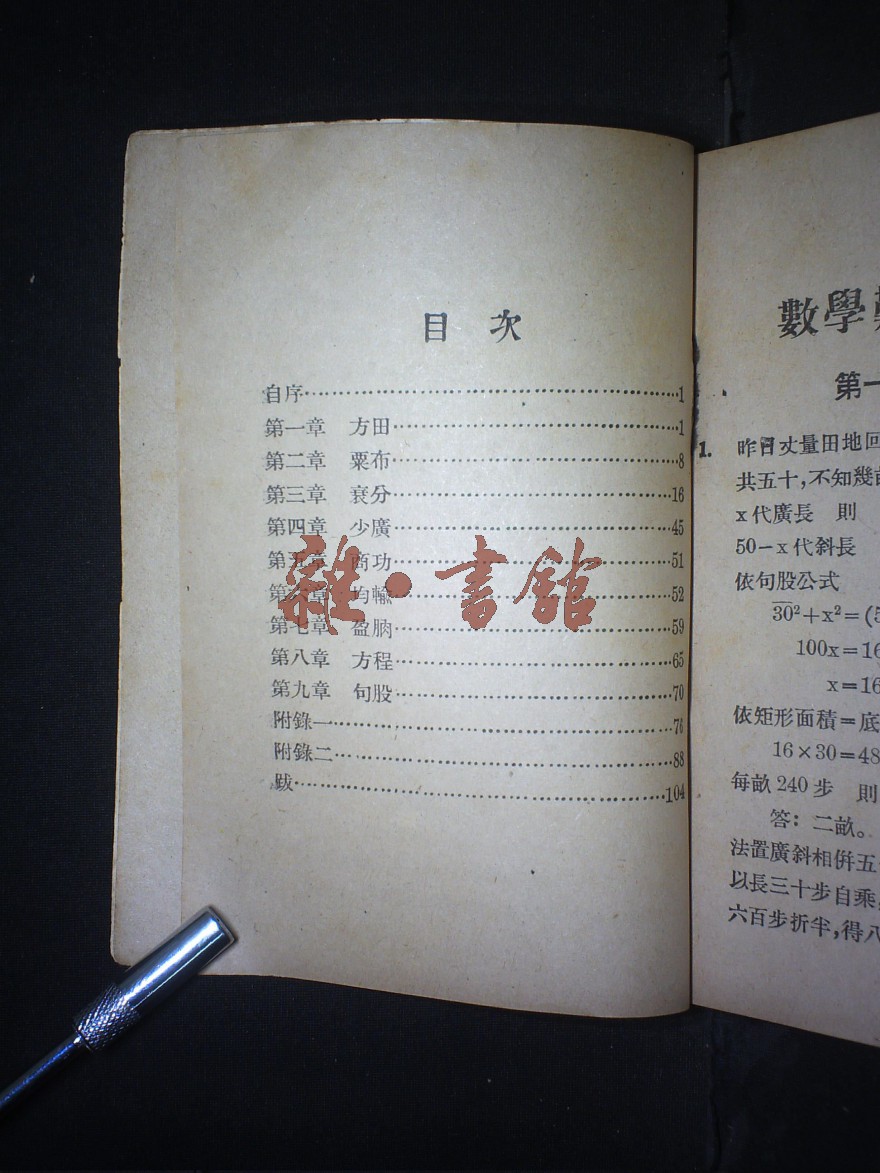 目次
自序……1
第一章 方田……1
第二章 粟布……8
第三章 衰分……16
第四章 少廣……45
第五章 商功……51
第六章 均輸……52
第七章 盈朒……59
第八章 方程……65
第九章 句股……70
附錄一……76
附錄二……88
跋……104
雜·書館
數學
第一
1. 昨日丈量田地回
共五十,不知幾
x代廣長 則
50−x代斜長
依句股公式
30²+x²=(5
100x=16
x=16
依矩形面積=底
16×30=48
每畝240步 則
答:二畝。
法置廣斜相倂五
以長三十步自乘,
六百步折半,得八